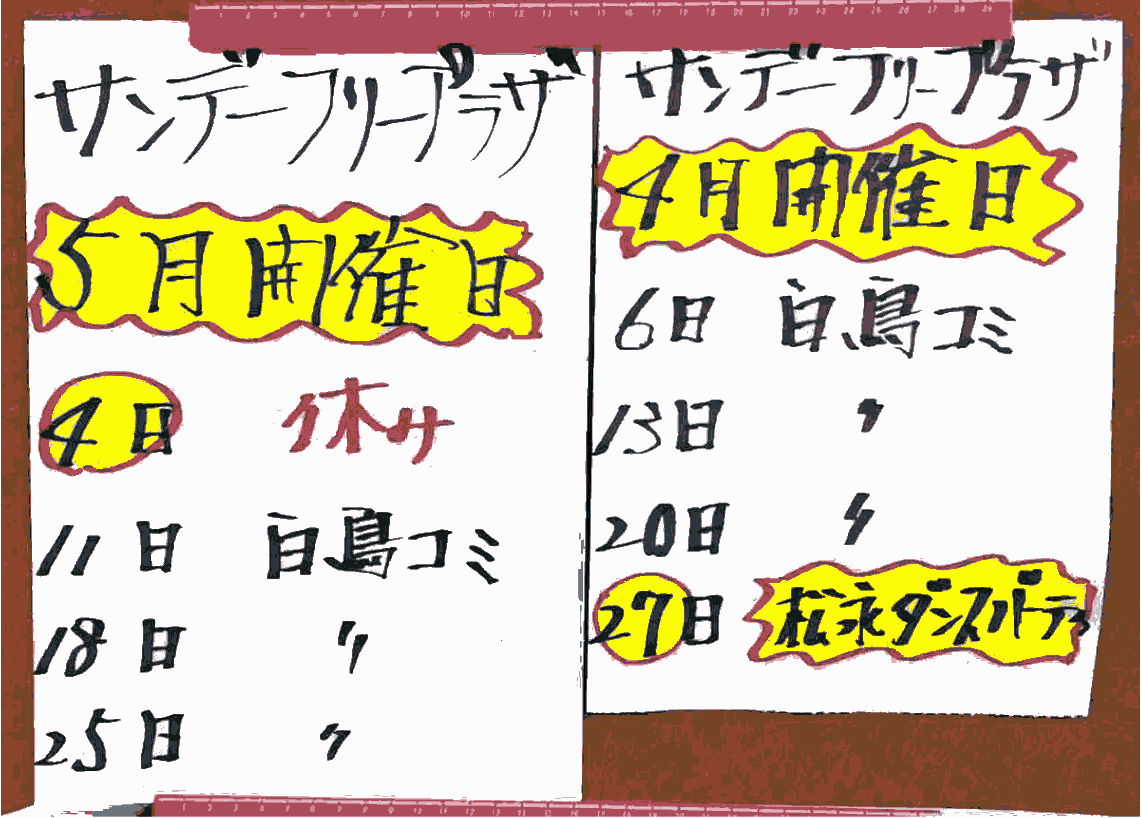 サンデーフリープラザ
5月開催日
4日 休み
11日 白鳥コミ
18日 〃
25日 〃
サンデーフリープラザ
4月開催日
6日 白鳥コミ
13日 〃
20日 〃
27日 松永ダンスパーティ